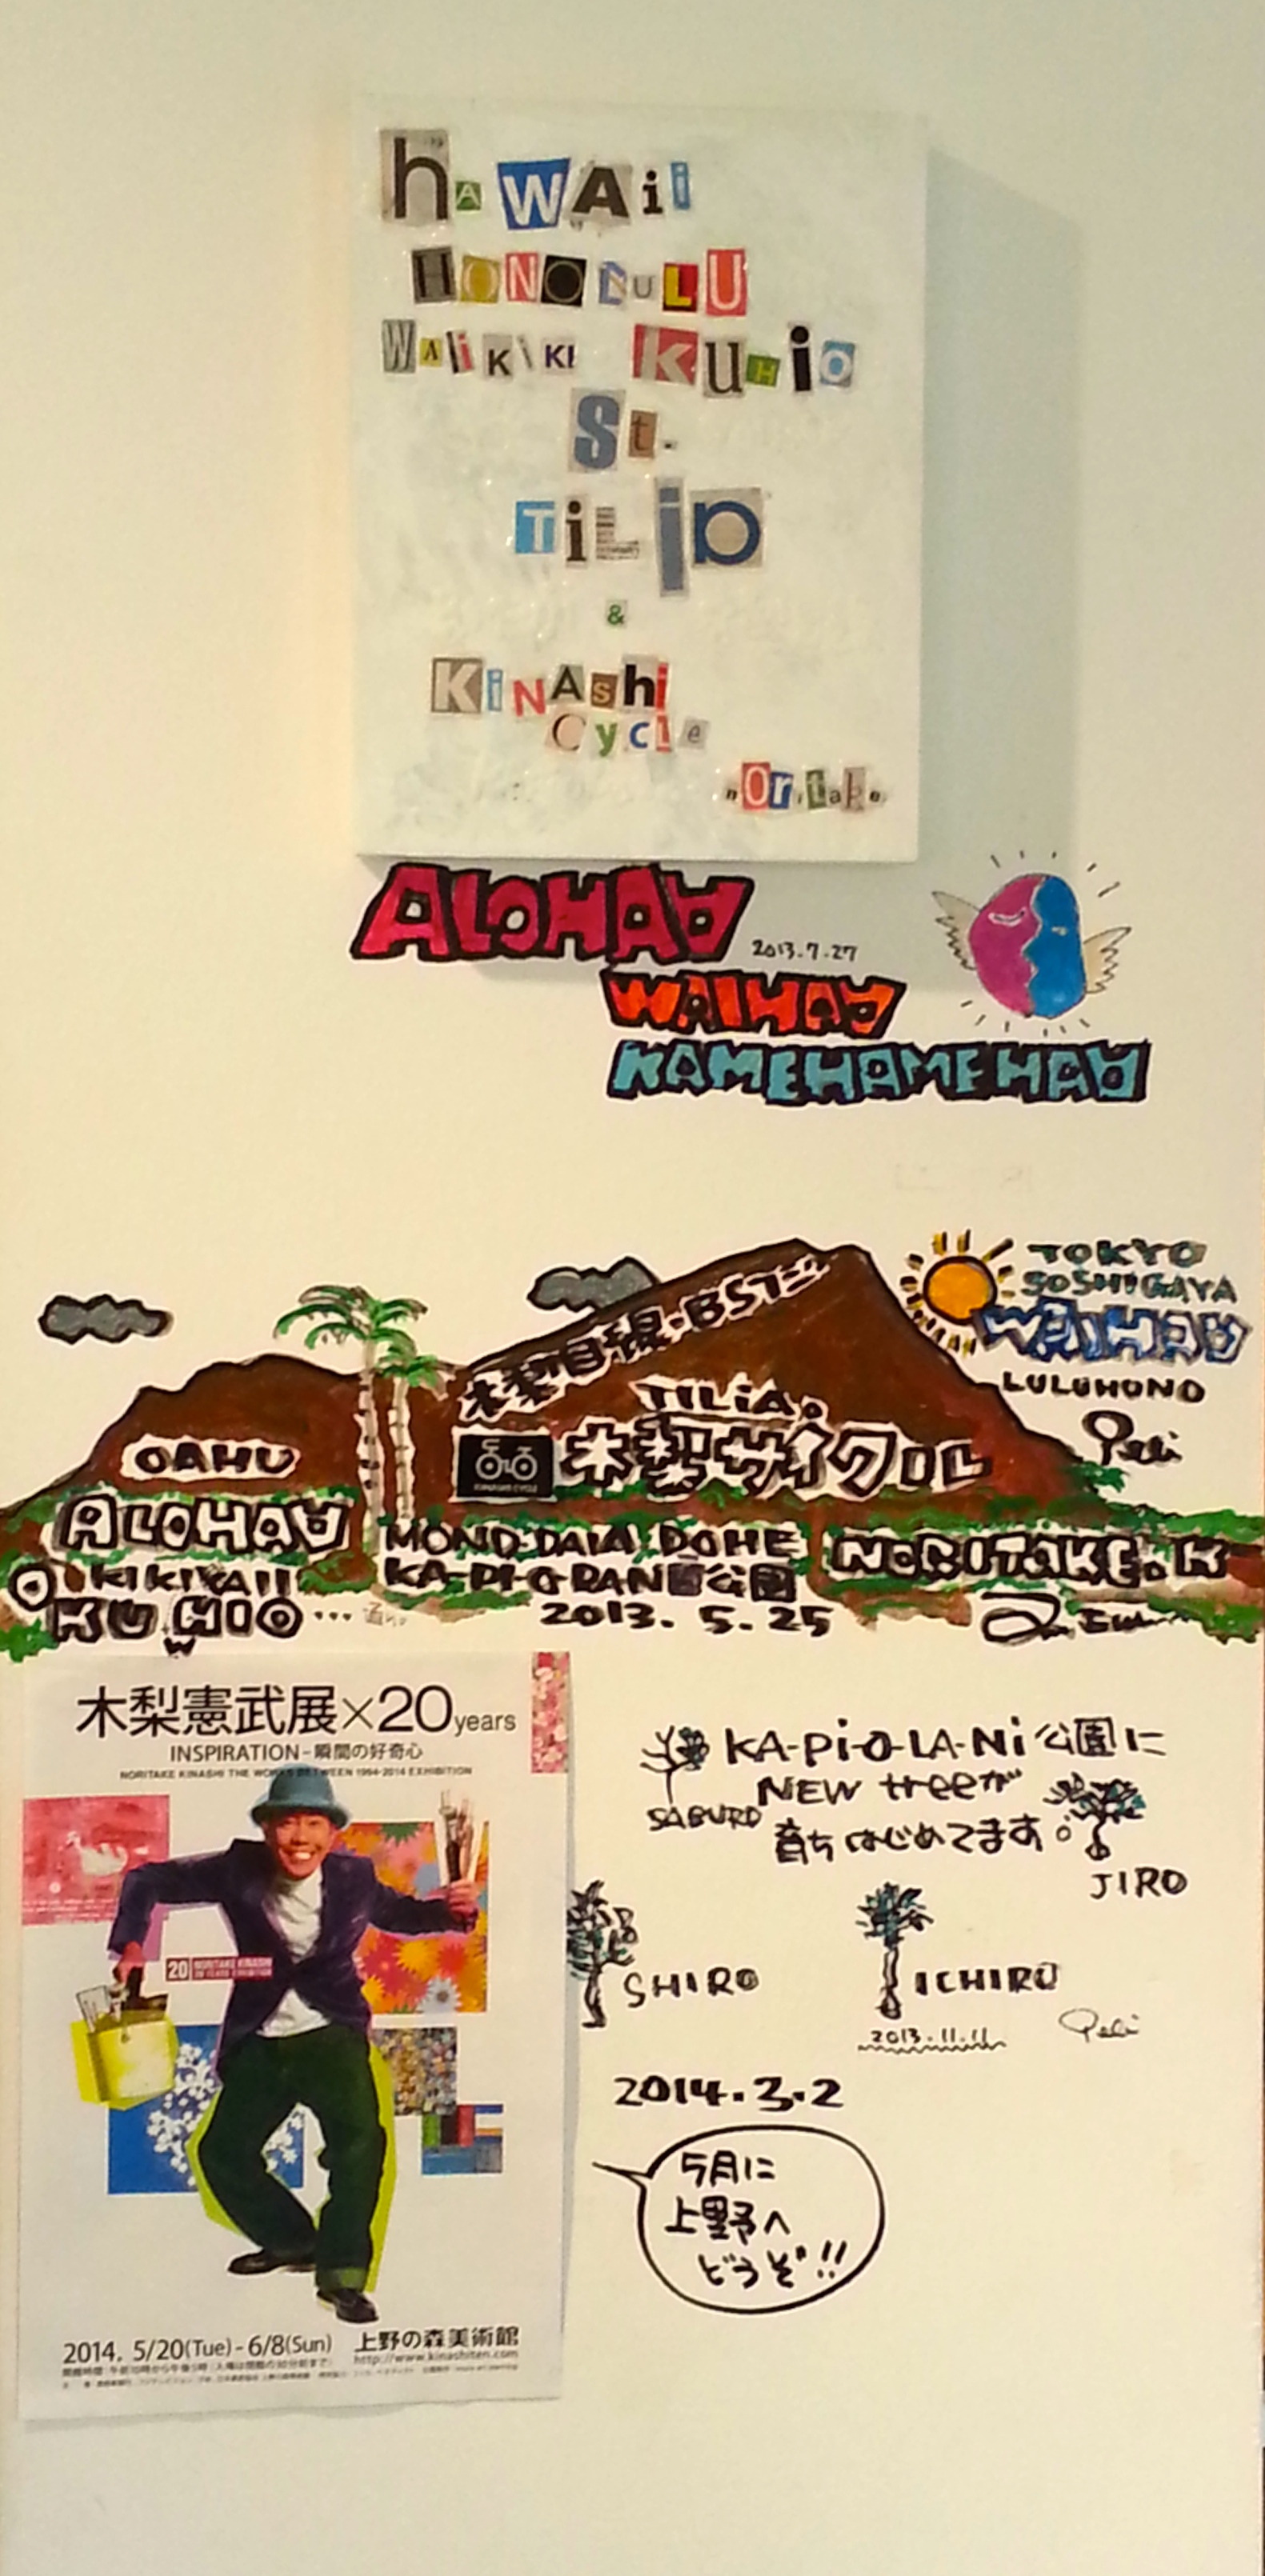 hAWAii
HONOLULU
WAiKiKi KUHio
St.
TiLiD
&
KiNAshi
Cycle
noritake
ALOHAA
2013.7.27
WAIHAA
KAMEHAMEHAA
TOKYO
SOSHIGAYA
WAIHAA
LULUHONO
木梨目線・BSフジ
TILiA。
木梨サイクル
OAHU
ALOHAA
MOND DAIA DOHE
NORITAKE.K
KA-PI-O-RAN
公園
KU HIO
2013. 5.25
木梨憲武展×20years
INSPIRATION-瞬間の好奇心
NORITAKE KINASHI THE WORKS BETWEEN 1994-2014 EXHIBITION
20 NORITAKE KINASHI
20 YEARS EXHIBITION
2014. 5/20(Tue)-6/8(Sun) 上野の森美術館
http://www.kinashiten.com
KA-Pi-O-LA-Ni 公園に
NEW treeが
育ちはじめてます。
SABURO
JIRO
SHIRO
ICHIRO
2013.11.11
2014.3.2
5月に
上野へ
どうぞ!!